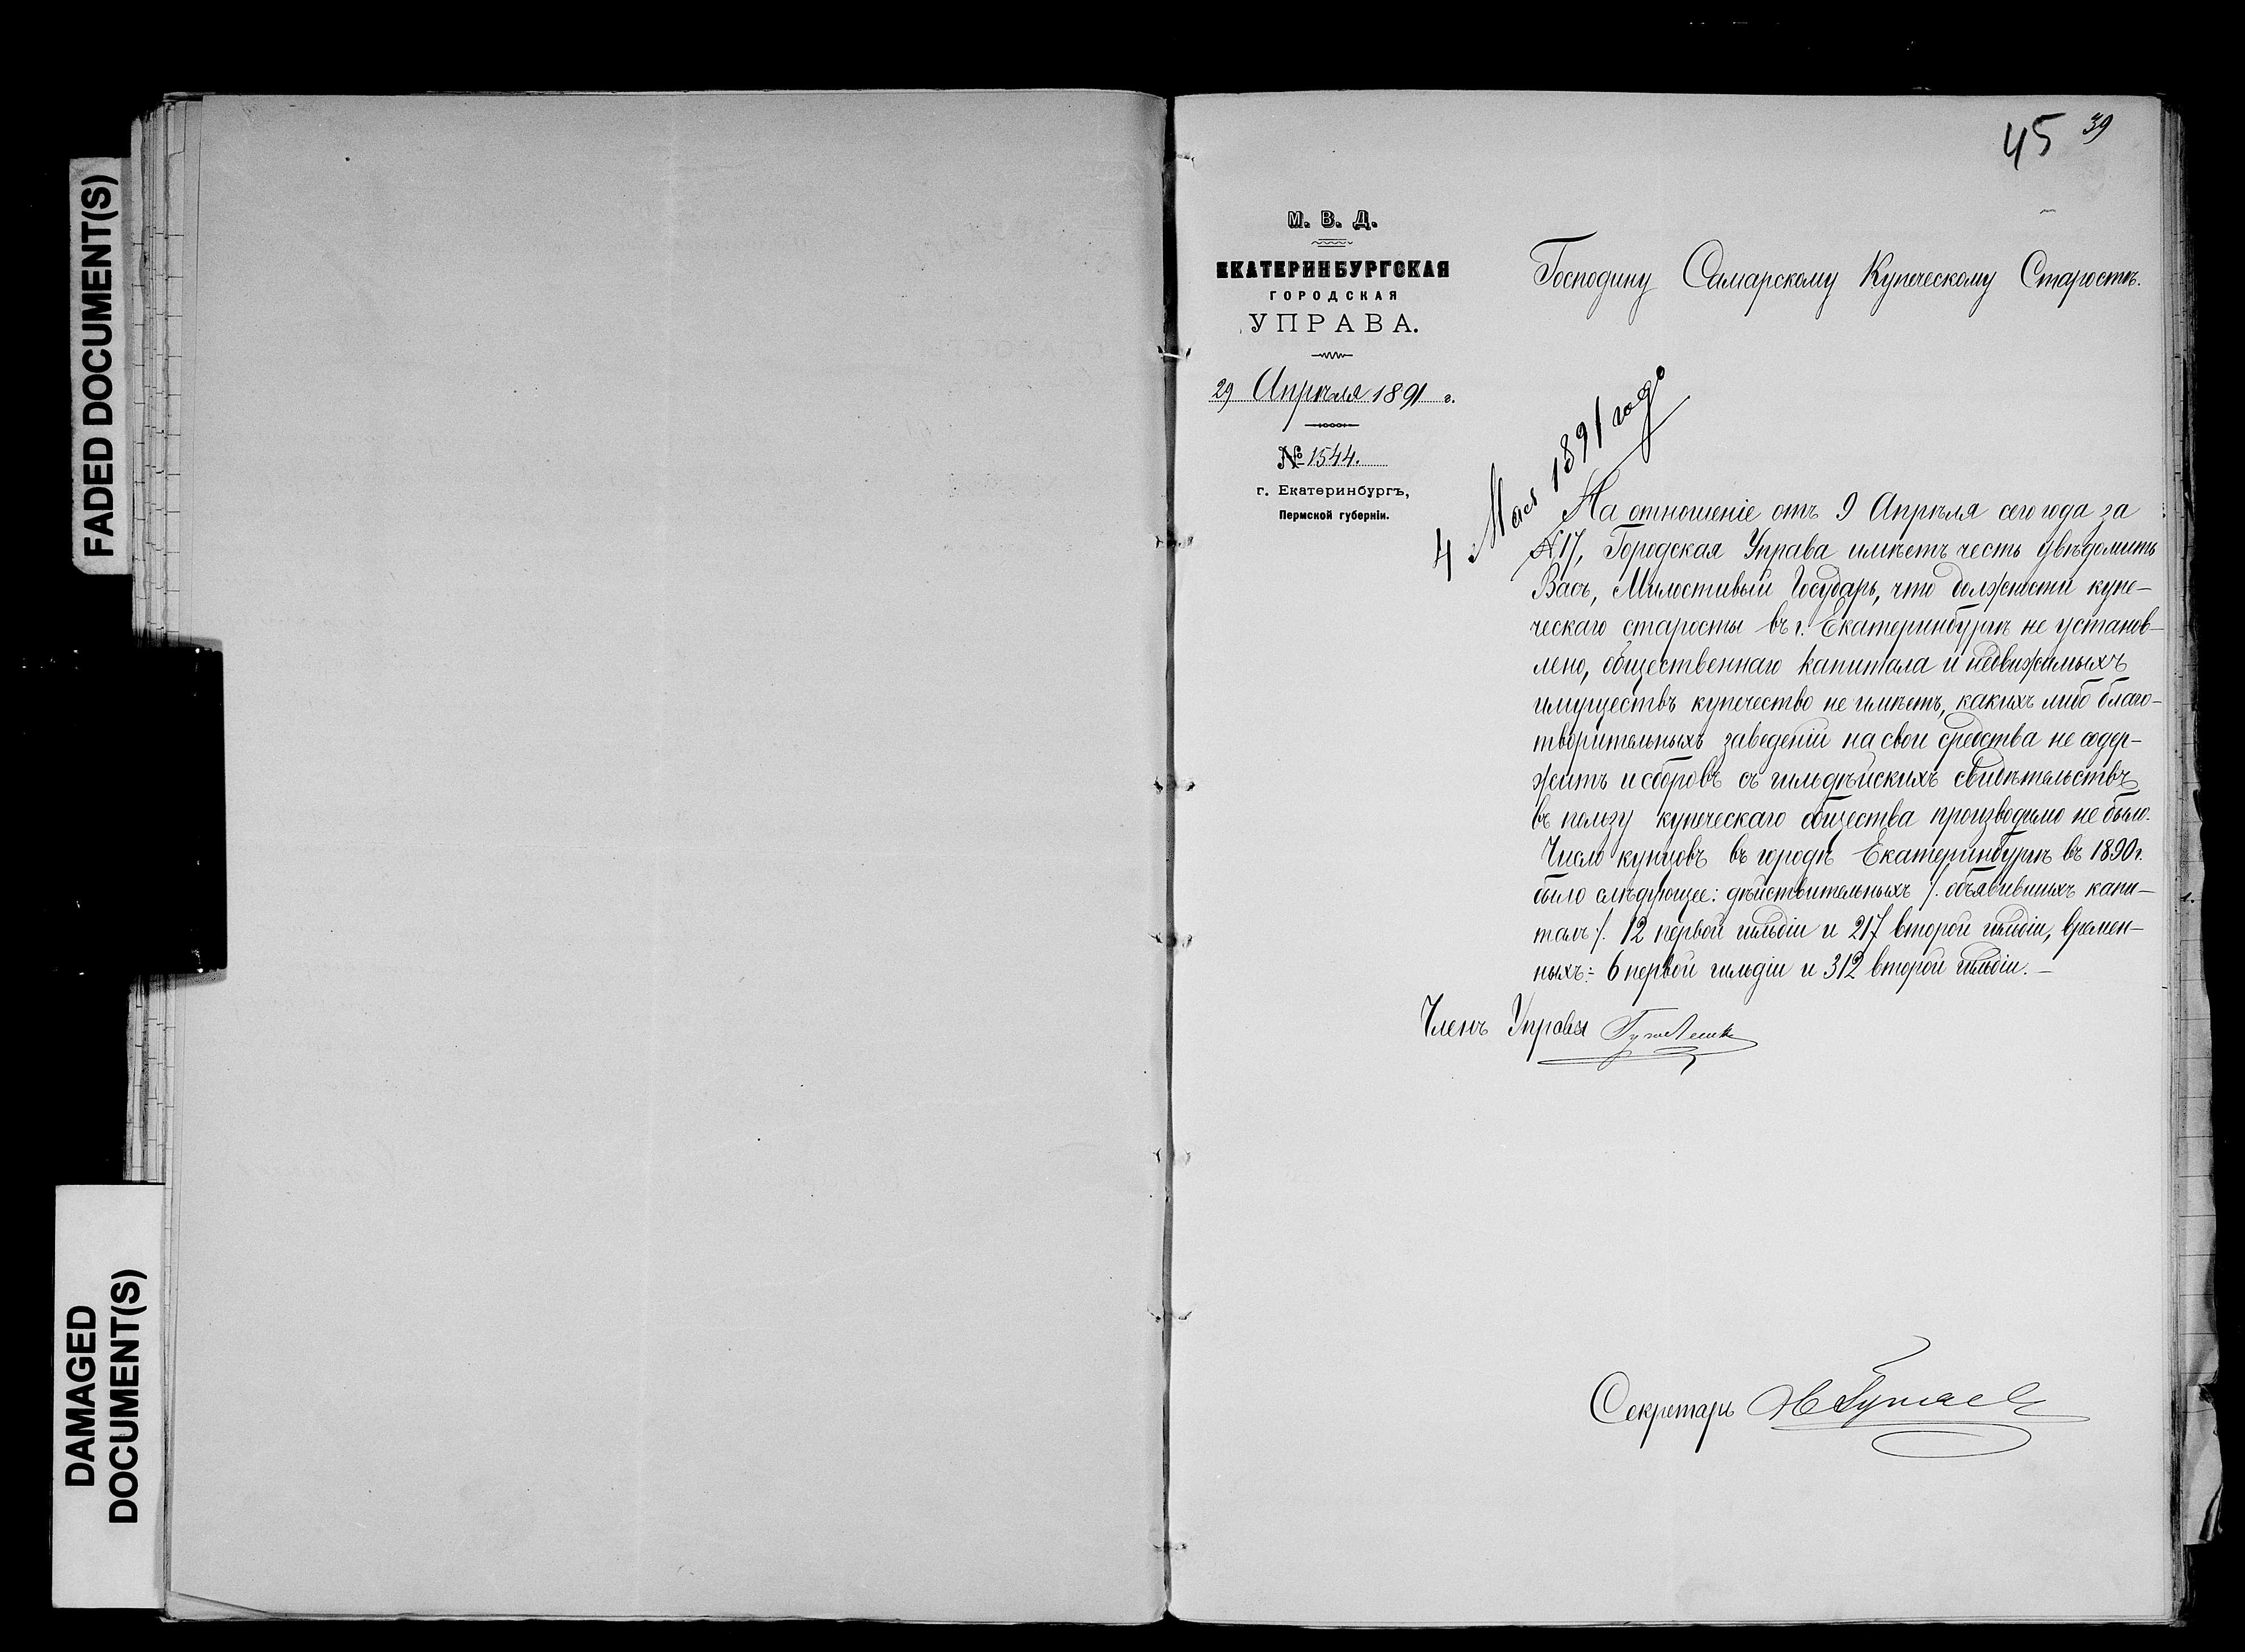 FADED DOCUMENT(S)
DAMAGED
DOCUMENT(S)
45 39
М. В. Д.
ЕКАТЕРИНБУРГСКАЯ
ГОРОДСКАЯ
УПРАВА.
29 Апрѣля 1891 г.
№ 1544.
г. Екатеринбургъ,
Пермской губерніи.
Господину Самарскому Купеческому Старостѣ.
4 Мая 1891 года
На отношеніе отъ 9 Апрѣля сего года за
№17, Городская Управа имѣетъ честь увѣдомить
Васъ, Милостивый Государь, что должности купе-
ческаго старосты въ г. Екатеринбургѣ не установ-
лено, общественнаго капитала и недвижимыхъ
имуществъ купечество не имѣетъ, какихъ либо благо-
творительныхъ заведеній на свои средства не содер-
житъ и сборовъ съ гильдѣйскихъ свидѣтельствъ
въ пользу купеческаго общества производимо не было.
Число купцовъ въ городѣ Екатеринбургѣ въ 1890 г.
было слѣдующее: дѣйствительныхъ /. объявившихъ капи-
талъ /. 12 первой гильдіи и 217 второй гильдіи, времен-
ныхъ: 6 первой гильдіи и 312 второй гильдіи. —
Членъ Управы
Секретарь